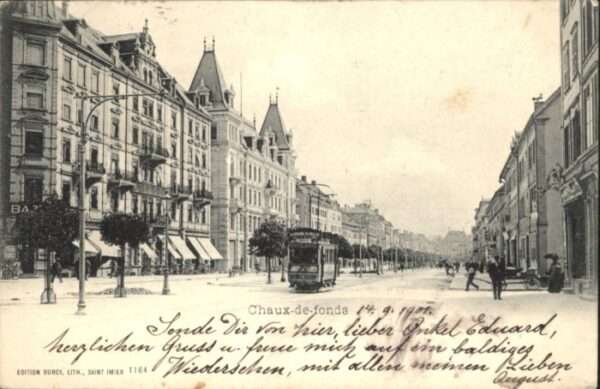 BA
Chaux-de-fonds 14.9.1901.
Sende Dir von hier, lieber Onkel Eduard,
herzlichen Gruss u. freue mich auf ein baldiges
Wiedersehen, mit allen meinen Lieben
August.
EDITION BURGY, LITH., SAINT IMIER 1164